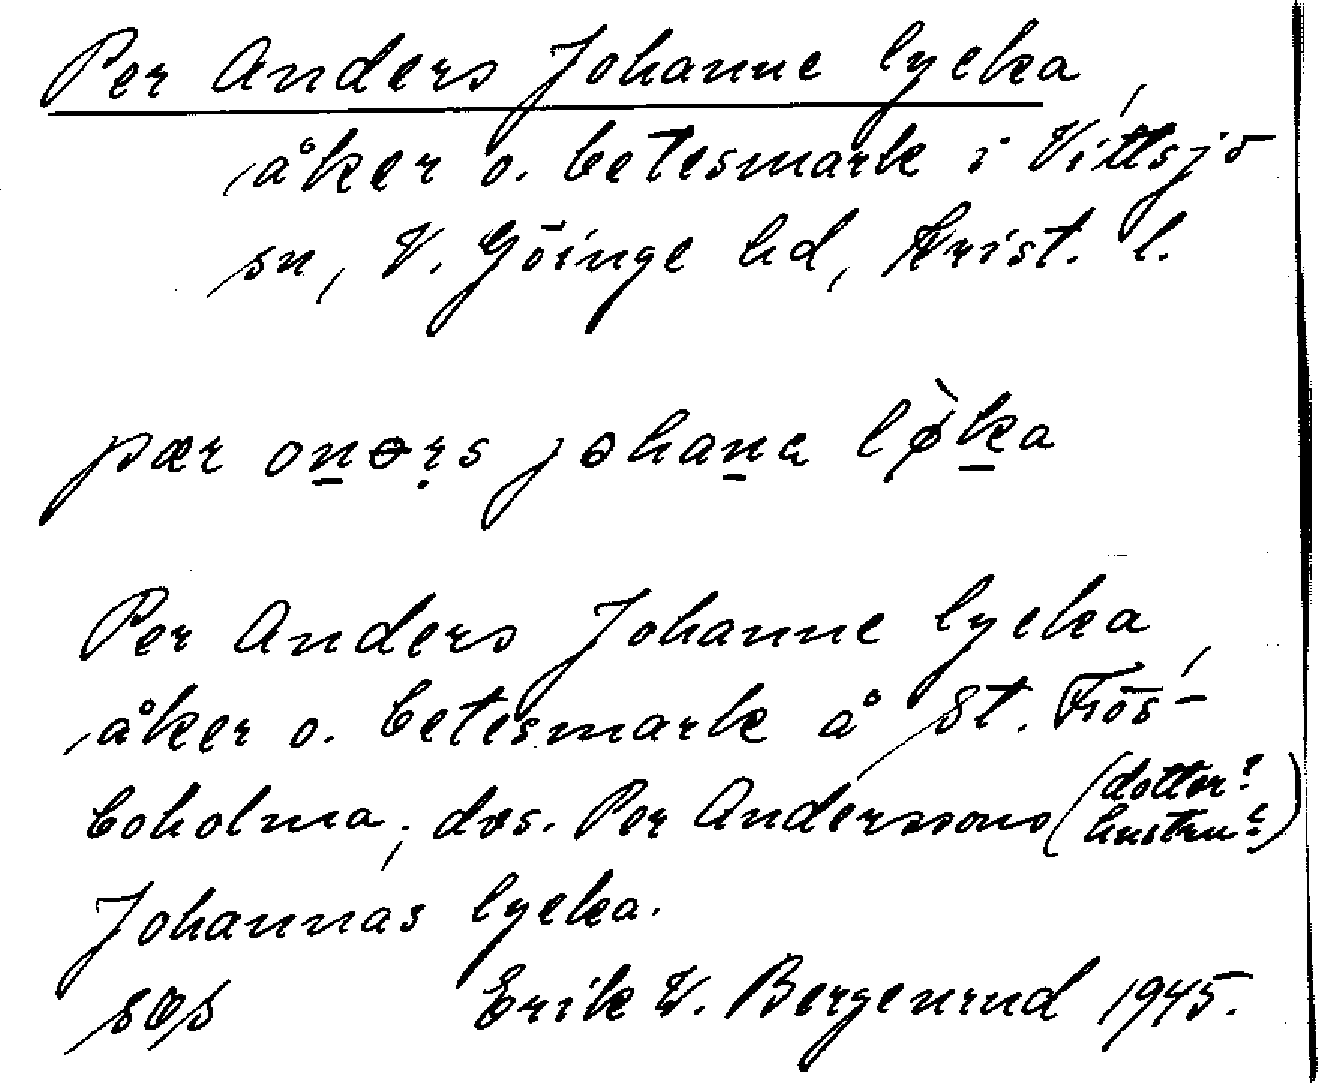 Per Anders Johanne lycka,
åker o. betesmark i Vittsjö
sn, V. Göinge hd, Krist. l.
pær onərs johana lø̀ka
Per Anders Johanne lycka,
åker o. betesmark å St. Frös-
boholma; dvs. Per Anderssons (dotter? hustru?)
Johannas lycka.
Erik W. Bergenrud 1945.